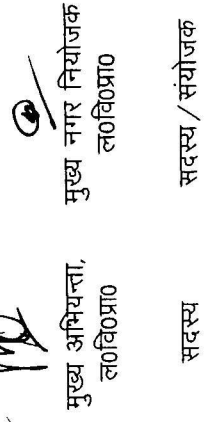 मुख्य अभियन्ता,
ल०वि०प्रा०
सदस्य
मुख्य नगर नियोजक
ल०वि०प्रा०
सदस्य / संयोजक